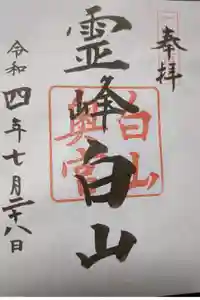 奉拝
霊峰白山
白山
奥宮
令和四年七月二十八日